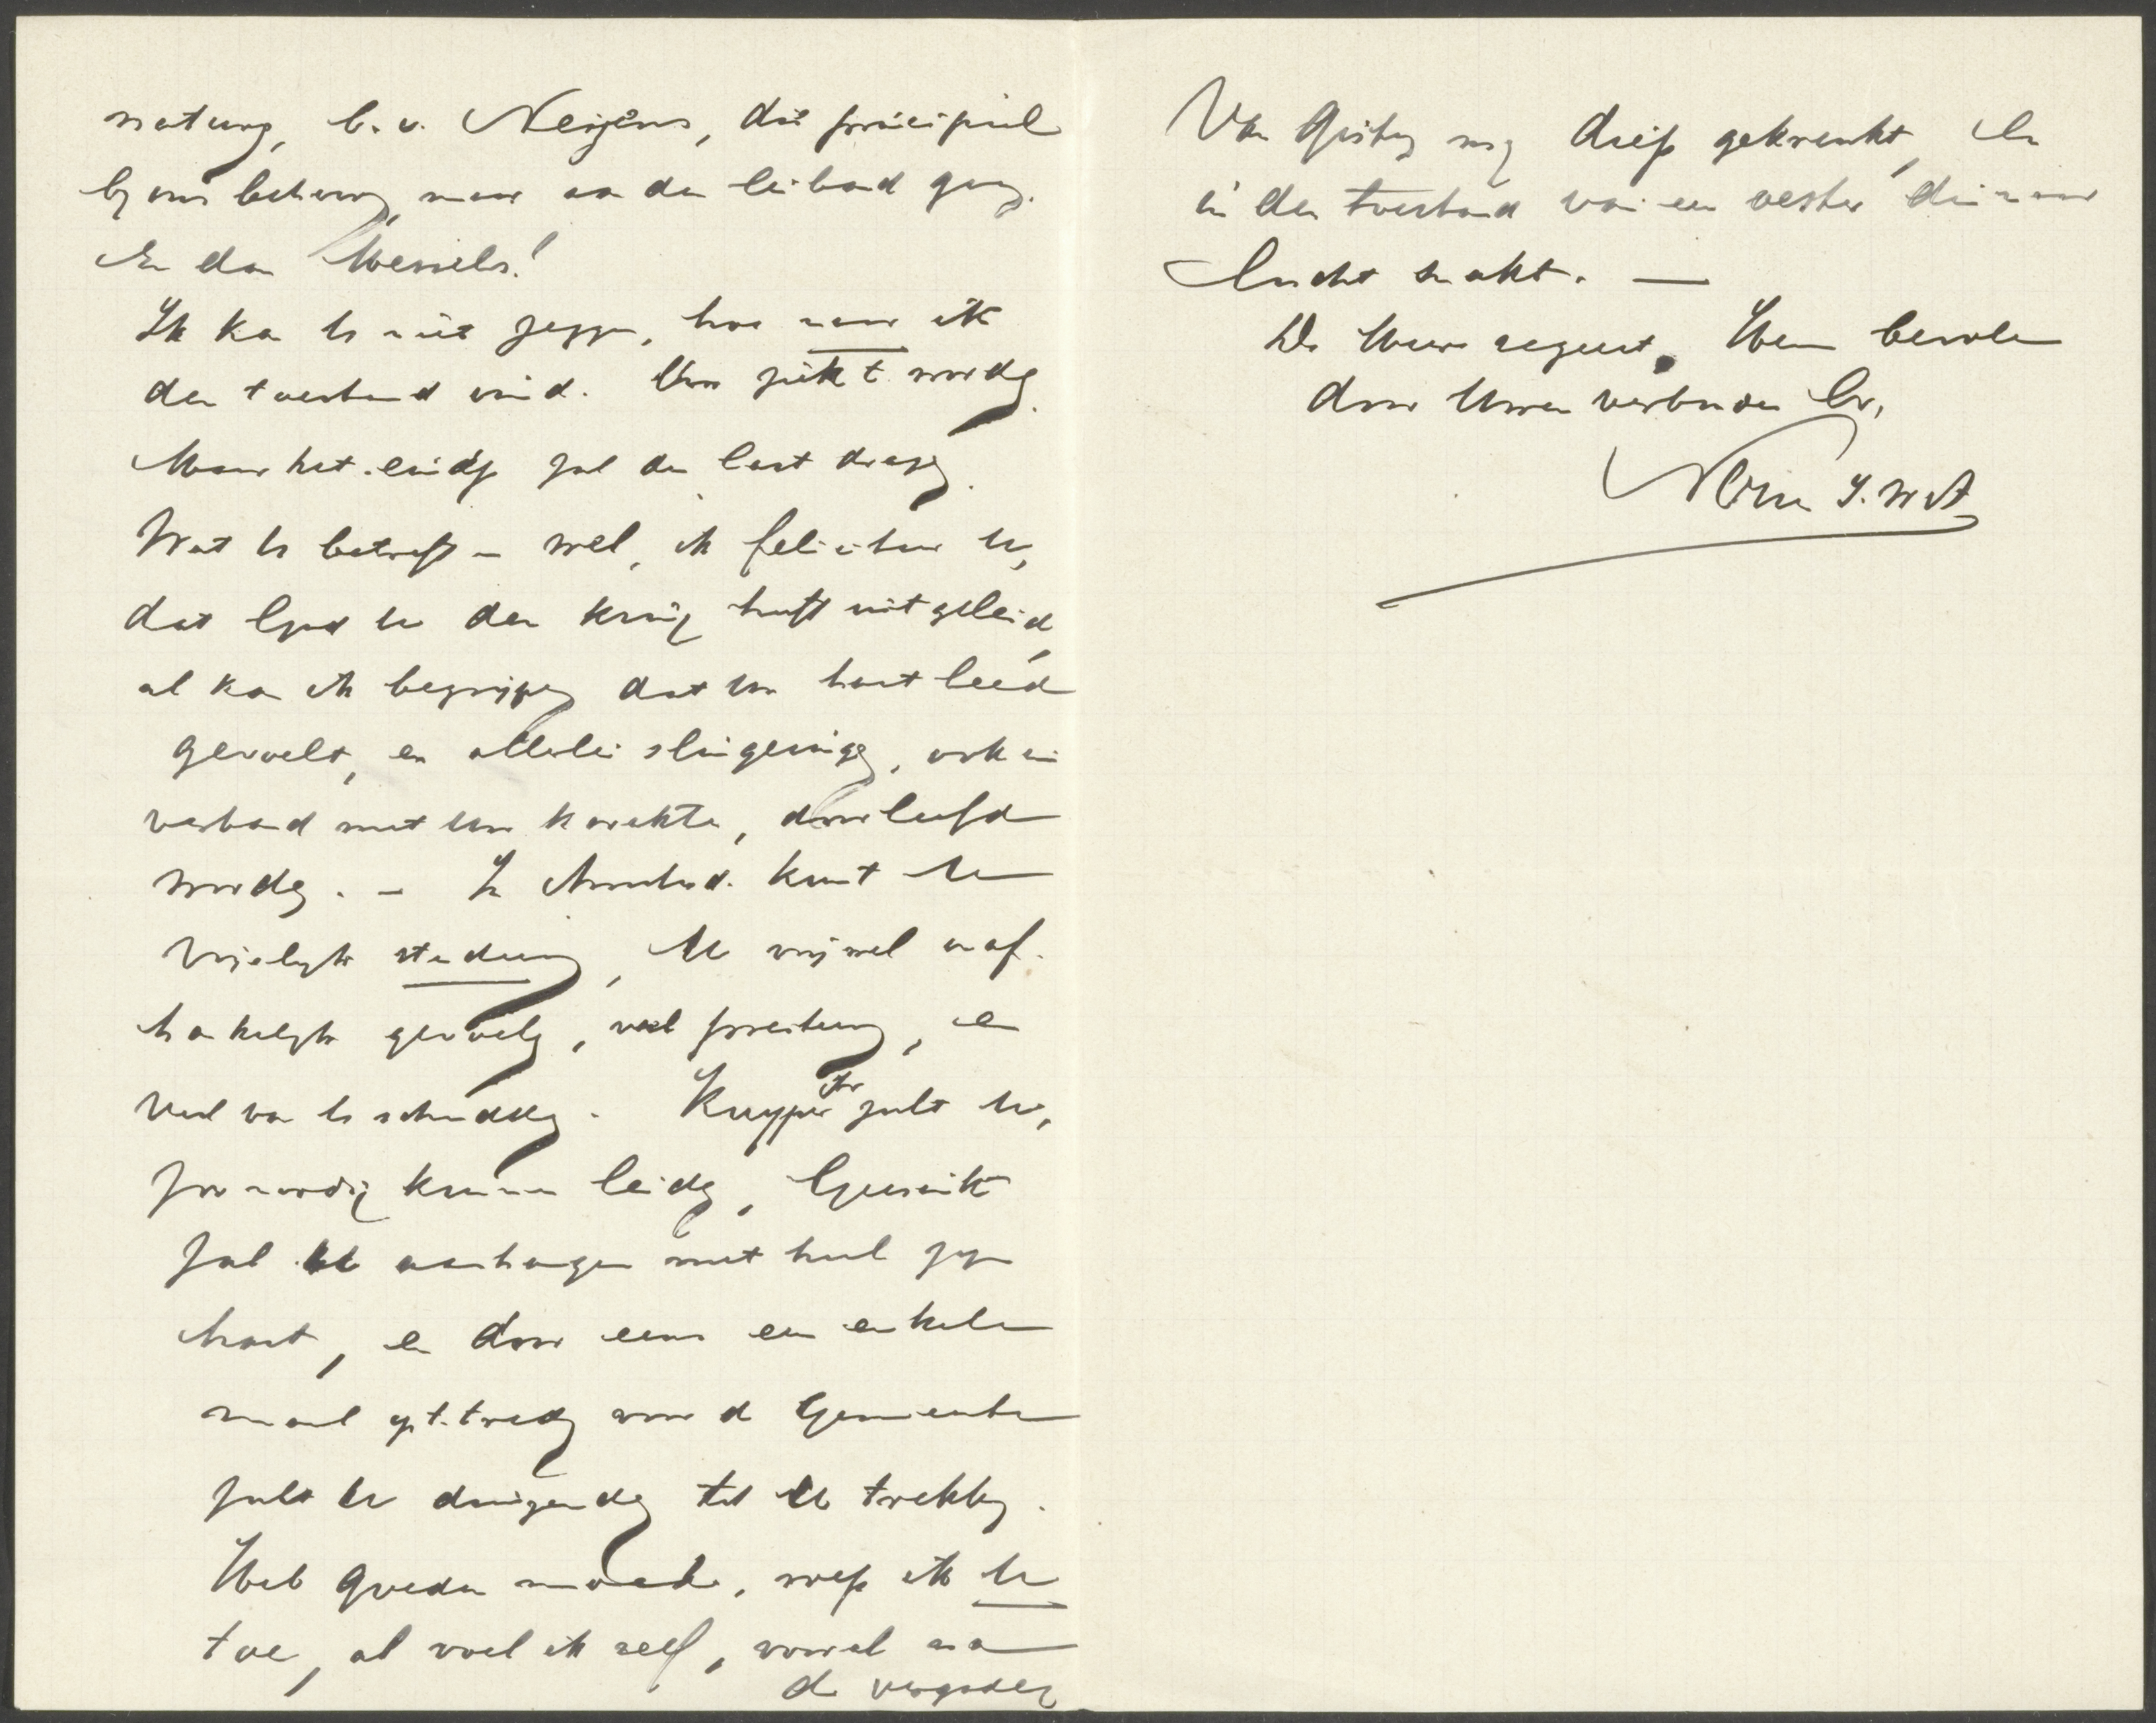 natuur, b.v. Neyens, die principieel
bij ons behoort, maar aan den leiband ging.
En dan Wessels!
Ik kan U niet zeggen, hoe naar ik
den toestand vind. Uw ziekt wordt
Maar het einde zal den last dragen.
Wat U betreft – wel, ik feliciteer U,
dat God U den kring heeft uitgeleid,
al kan ik begrijpen dat Uw hart leed
gevoelt, en allerlei slingeringen, ook in
verband met Uw karakter, doorleefd
worden. – In Amsterd. kunt U
vrijelijk studeeren, U vrijwel onaf-
hankelijk gevoelen, veel preeken, en
veel van U schudden. Kuyper zult U,
zoo noodig kunnen leiden, Geesink
zal U aanhangen met heel zijn
hart, en door eens een enkele
maal op te treden voor de Gemeente
zult U duizenden tot U trekken.
Heb goeden moed, roep ik U
toe, al voel ik zelf, vooral na
de vergader.
Van Gister mij diep gekrenkt, en
in den toestand van een visch die naar
lucht snakt. —
De Heere regeert. Hem bevolen
door Uwen verbonden br.,